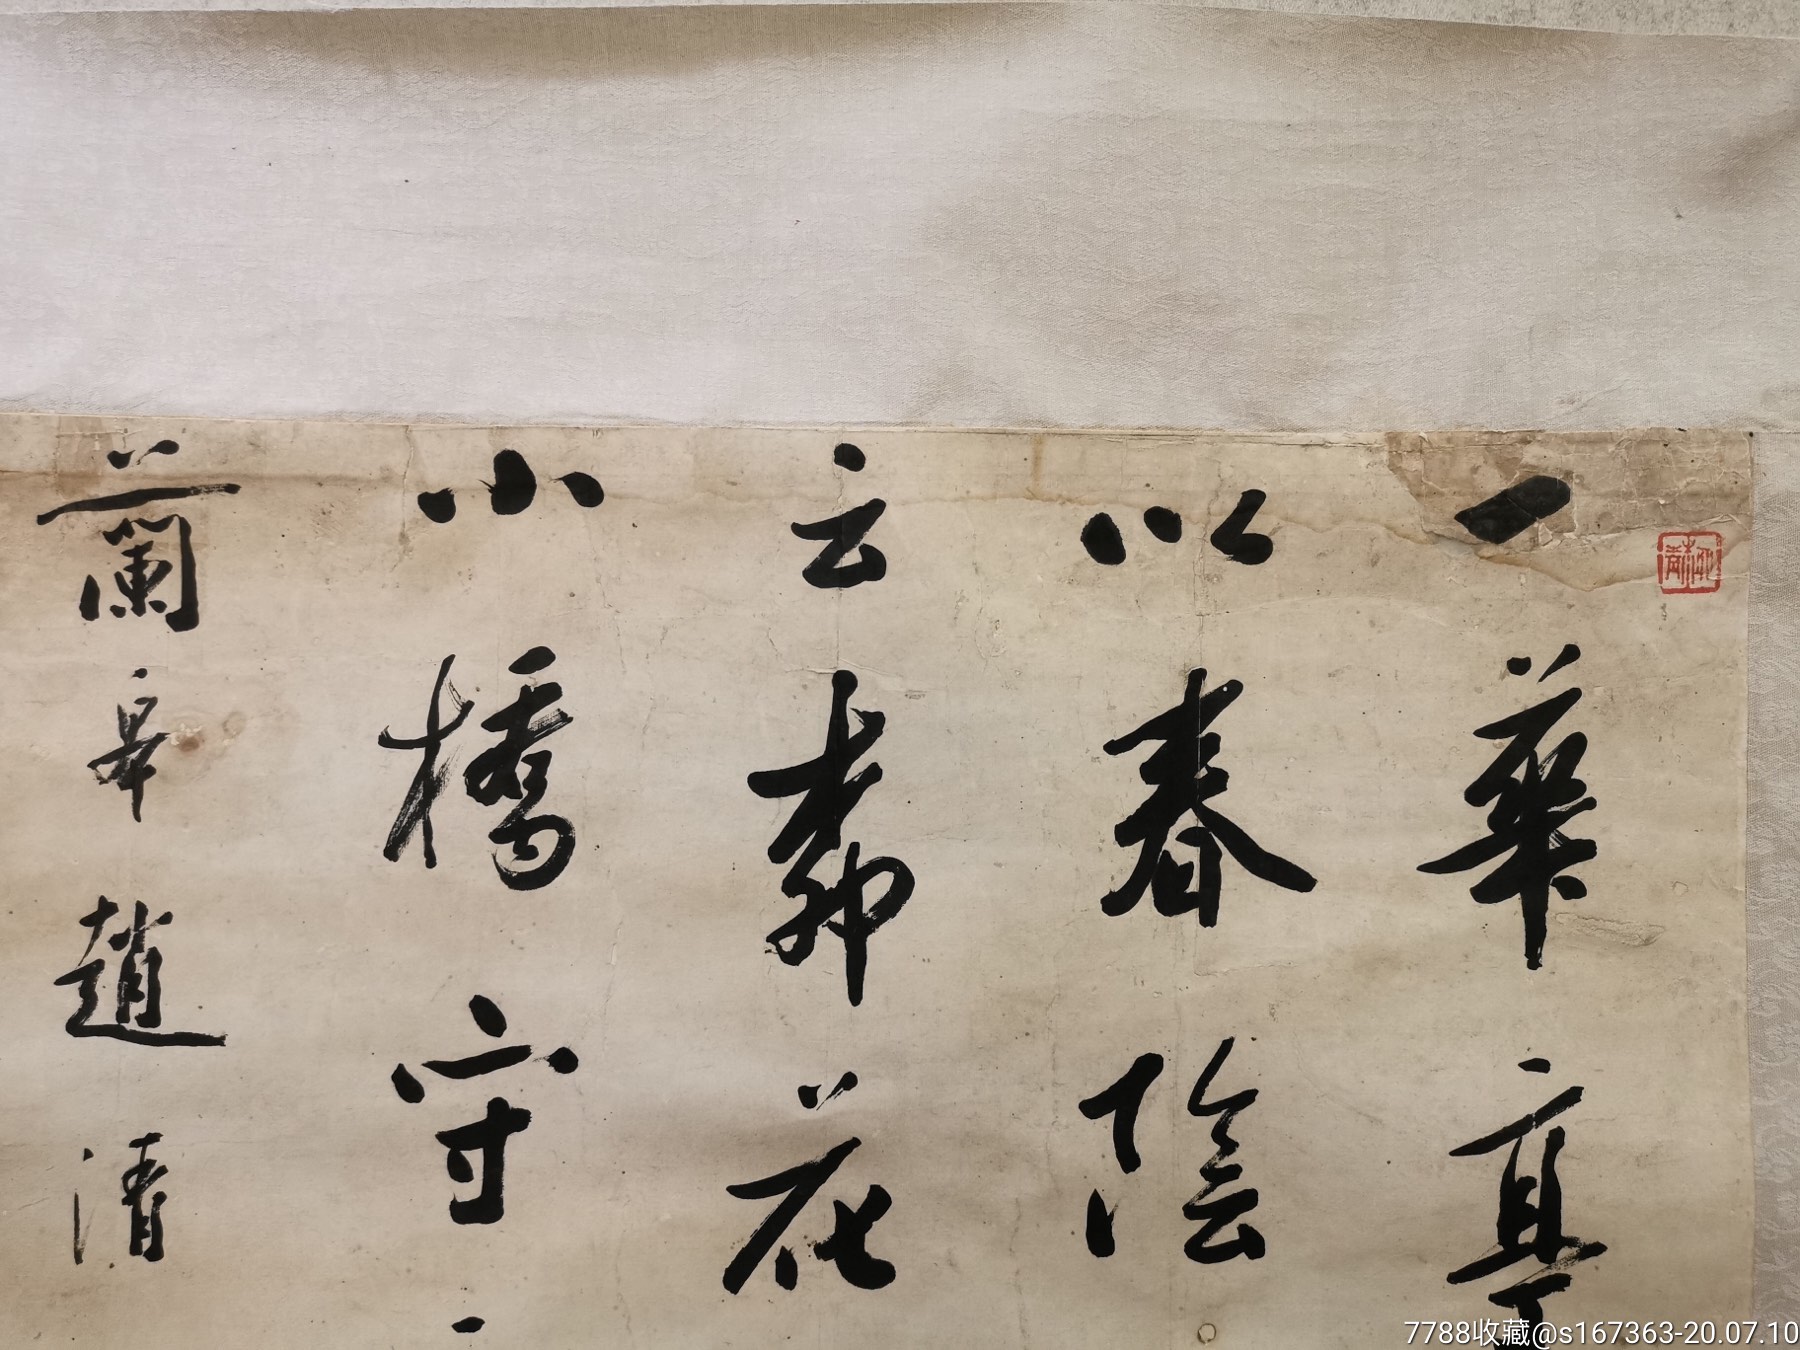 一華亭
以春陰
云 花
小橋守
蘭皋趙清
7788收藏@s167363-20.07.10